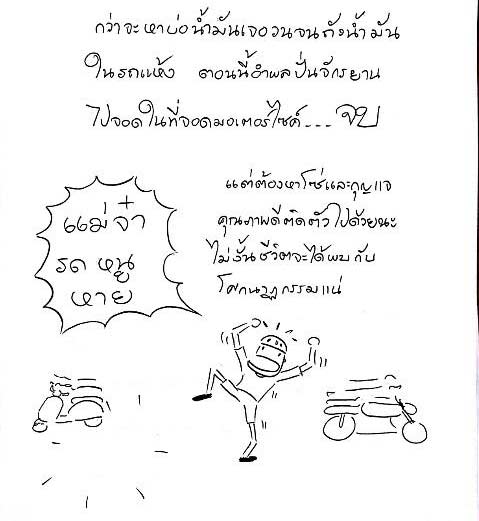 กว่าจะหาบ่อน้ำมันเจอวนจนถังน้ำมัน
ในรถแห้ง ตอนนี้อำพลปั่นจักรยาน
ไปจอดในที่จอดมอเตอร์ไซค์... จบ
แต่ต้องหาโซ่และกุญแจ
คุณภาพดีติดตัวไปด้วยนะ
ไม่งั้นชีวิตจะได้พบกับ
โศกนาฏกรรมแน่
แม่จ๋า
รถหนู
หาย